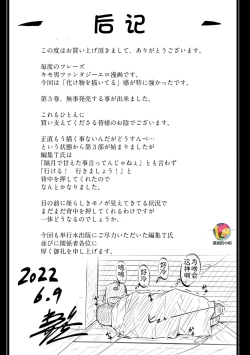 后记
この度はお買い上げ頂きまして、ありがとうございます。
毎度のフレーズ
キモ男ファンタジーエロ漫画です。
今回は「化け物を描いてる」感が特に強かったです。
第3巻、無事発売する事が出来ました。
これもひとえに
買い支えてくださる皆様のお陰でございます。
正直もう描く事ないんだがどうすんべ…
という状態から第3部が始まりましたが
編集T氏は
「隔月で甘えた事言ってんじゃねぇ」とも言わず
「行ける! 行きましょう!」と
背中を押してくれたので
なんとかなりました。
目の前に崖らしきモノが見えてきてる状況で
まだまだ背中を押してくれるわけですが
一体どうなるのでしょうか。
今回も単行本出版にご尽力いただいた編集T氏
並びに関係者各位に
厚く御礼を申し上げます。
2022
6.9
为啥会这样啊
好冷
好冷
呜呜